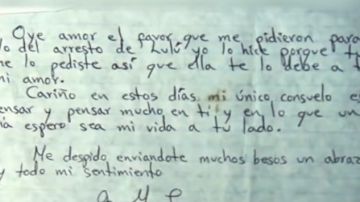 Oye amor el favor que me pidieron para
lo del arresto de Lulú yo lo hice porque t
me lo pediste así que ella te lo debe a t
mi amor.
Cariño en estos días mi único consuelo e
pensar y pensar mucho en ti y en lo que un
día espero sea mi vida a tu lado.
Me despido enviandote muchos besos un abraz
y todo mi sentimiento